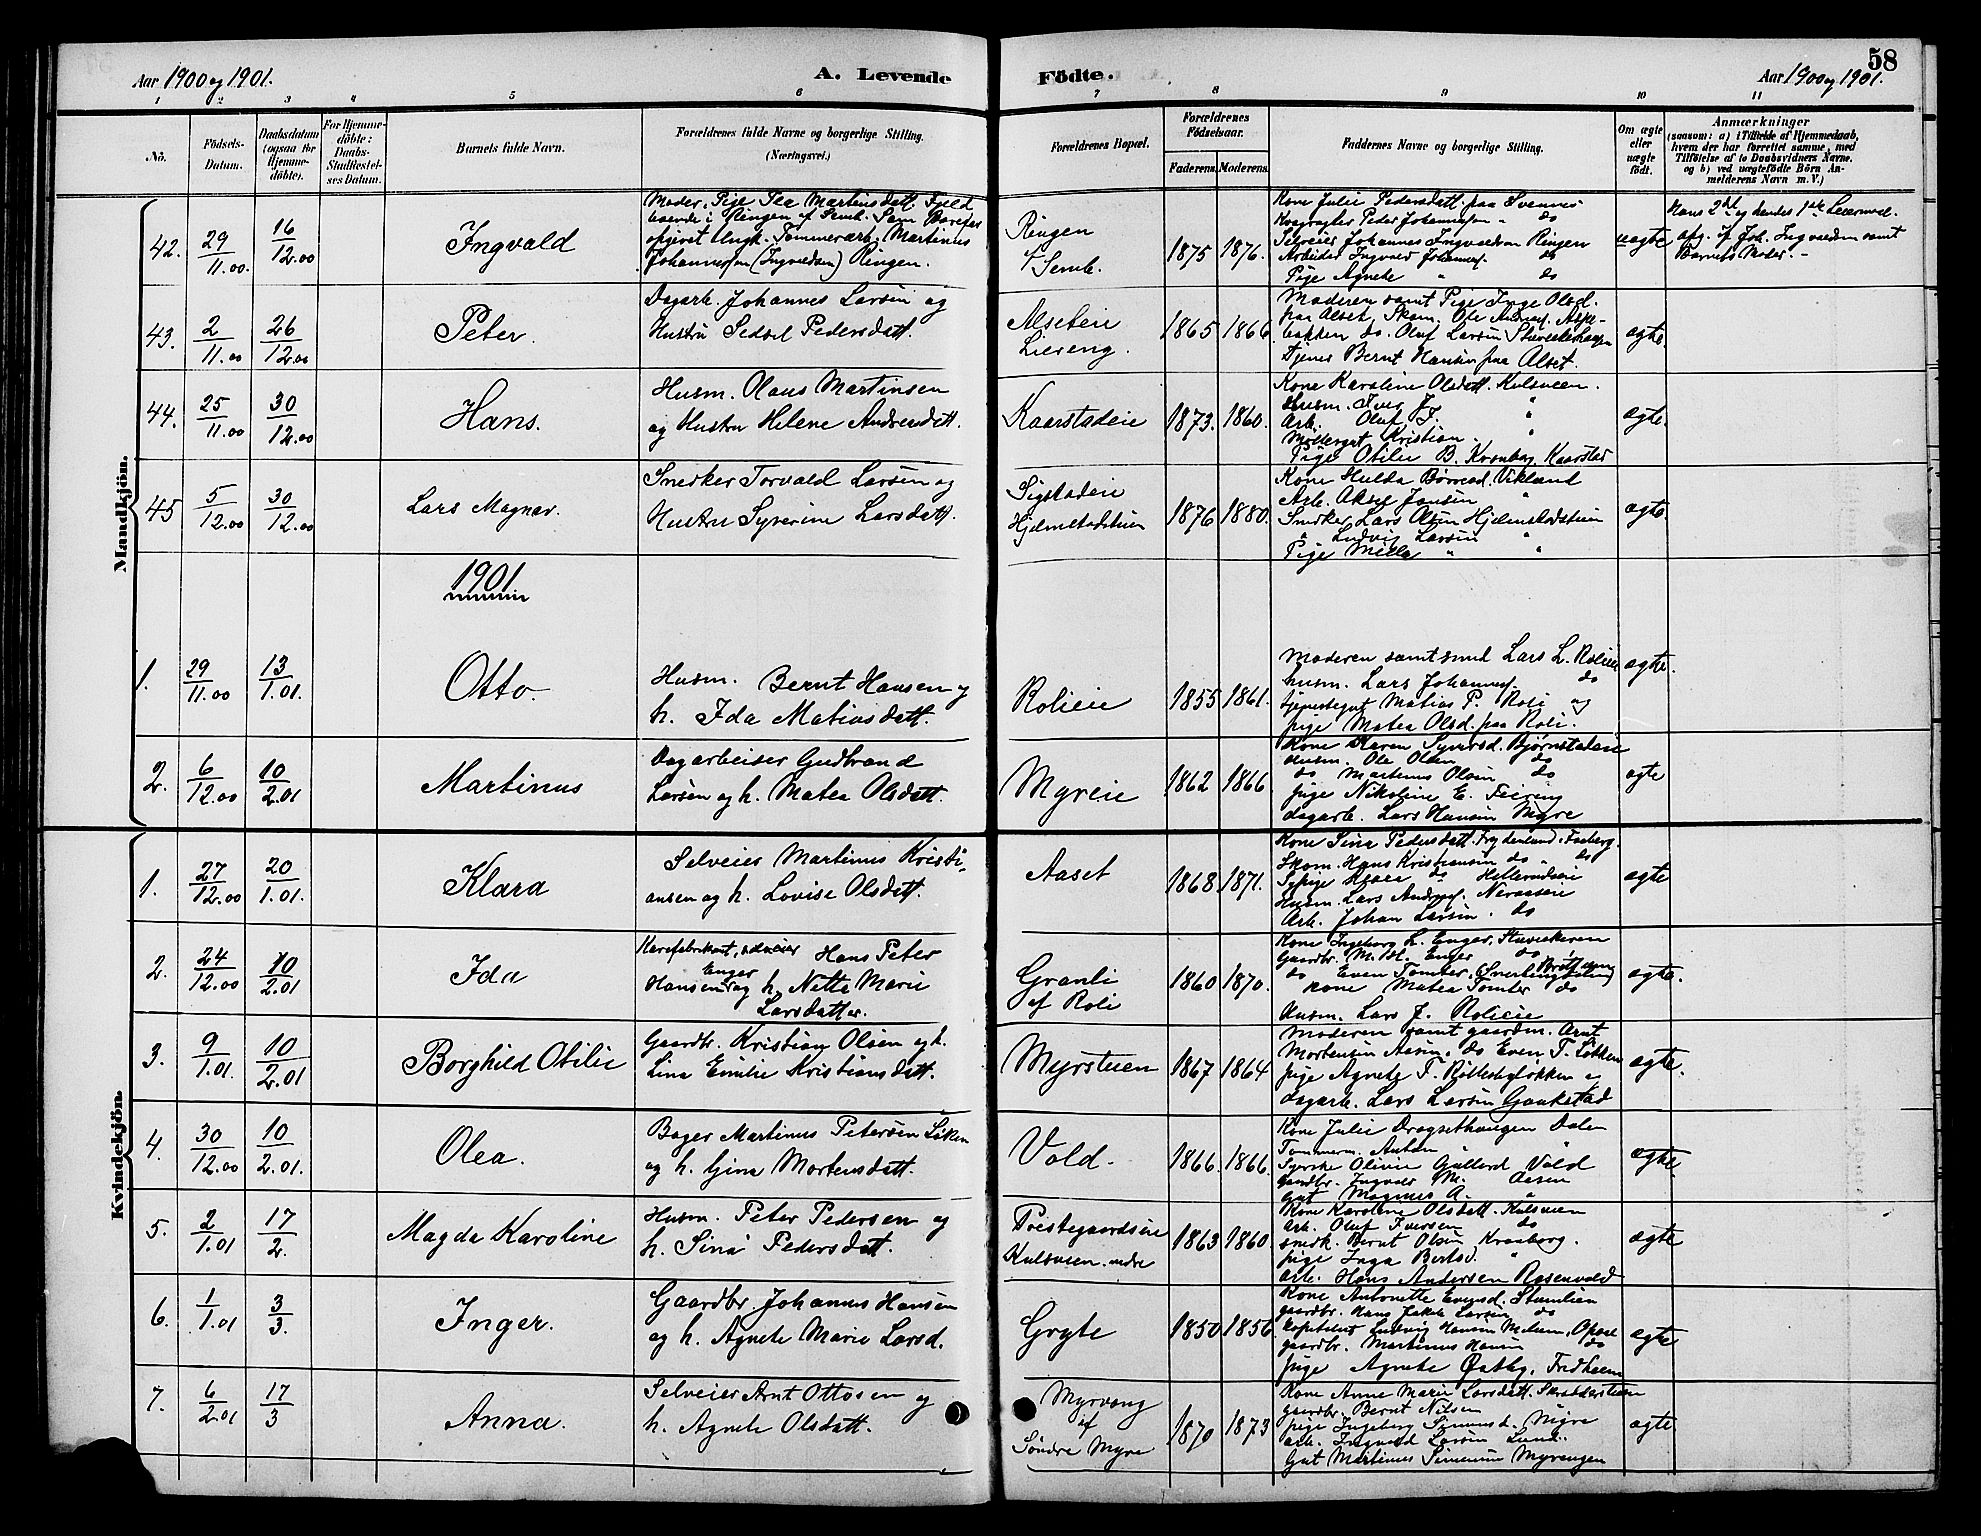 58
Aar 1900 og 1901.
A. Levende
Födte.
Aar 1900 og 1901.
1 2 3 4 5 6 7 8 9 10 11
No.
Födsels-
Datum.
Daabsdatum
(ogsaa for
Hjemme-
döbte).
For Hjemme-
döbte:
Daabs-
Stadfæstel-
ses Datum.
Barnets fulde Navn.
Forældrenes fulde Navne og borgerlige Stilling.
(Næringsvei.)
Forældrenes Bopæl.
Forældrenes
Födselsaar.
Faderens. Moderens.
Faddernes Navne og borgerlige Stilling.
Om ægte
eller
uægte
födt.
Anmærkninger
(saasom: a) i Tilfælde af Hjemmedaab,
hvem der har forrettet samme, med
Tilföielse af to Daabsvidners Navne.
og b) ved uægtefödte Börn An-
melderens Navn m. V.)
Mandkjön.
42.
29/11.00
16/12.00
Ingvald
Moder, Pige Pea Martinsdatt. Fjeld
boende i Ringen af Semb. Som Barnefar
opgivet Ungk. Tømmerarb. Martinus
Johannessen (Ingvaldsen) Ringen.
Ringen
af Semb.
1875
1876.
Kone Julie Pedersdatt. paa Svennes
Peder Johannessen " do
Selveier Johannes Ingvaldsen Ringen
Arbeider Ingvald Johannes. do
Pige Agnete " do
uægte
Hans 2det og hendes 1ste Leiermaal.
opg. af Joh. Ingvaldsen samt
Barnets Moder. -
43.
2/11.00
26/12.00
Peter.
Dagarb. Johannes Larsen og
Hustru Sedsel Pedersdatt.
Alseteie
Liereng.
1865
1866
Moderen samt Pige Inge Olsd.
paa Alset, Skom. Ole Andreas.
bakken do. Oluf Larsen
Tjener Bernt Hansen paa Alset.
ægte.
44.
25/11.00
30/12.00
Hans.
Husm. Olaus Martinsen
og Hustru Helene Andreasdatt.
Kaarstadeie
1873.
1860.
Kone Karoline Olsdatt. Kulsveen.
Husm. Iver J. "
Arb. Oluf I. "
Kristian. "
Pige Otilie B. Kronborg. Kaarstad
ægte.
45
5/12.00
30/12.00
Lars Magnar.
Snedker Torvald Larsen og
Hustru Syverine Larsdatt.
Sigstadeie
Hjelmstadstuen
1876
1880.
Kone Hulda Viklund
Arb. Aksel Jansen "
Snedker Lars Olsen Hjelmstadstuen
" Ludvig Larsen "
Pige Milla " "
ægte.
1901
1.
29/11.00
13/1.01.
Otto.
Husm. Bernt Hansen og
h. Ida Matiasdatt.
Rolieie
1855
1861.
Moderen samt smed Lars L. Rolieie
husm. Lars Johannes. do
tjenestegut Matias P. Roli og
pige Matea Olsd. paa Roli.
ægte.
2.
6/12.00
10/2.01
Martinus
Dagarbeider Gudbrand
Larsen og h. Matea Olsdatt.
Myreie
1862
1866
Kone Karen Syversd. Bjørnstadeie
Husm. Ole Olsen do
do Martinus Olsen do
pige Nikoline E. Feiring
dagarb. Lars Hansen Myre
ægte
Kvindekjön.
1.
27/12.00
20/1.01.
Klara
Selveier Martinus Kristi-
ansen og h. Lovise Olsdatt.
Aaset
1868.
1871.
Kone Sina Pedersdatt. Frydenlund, Faaberg.
Skom. Hans Kristiansen do " do
Sypige Klara do
Husm. Lars Neraaseie
Arb. Johan Larsen. do
ægte
2.
24/12.00
10/2.01
Ida
Karefabrikant, selveier Hans Peter
Hansen Enger og h. Nette Marie
Larsdatter.
Granli
af Roli
1860
1870.
Kone Ingeborg L. Enger,
Gaardbr. M. H. Enger do
do Even Tomter,
kone Matea Tomter do
Husm. Lars J. Rolieie
ægte.
3.
9/1.01.
10/2.01
Borghild Otilie
Gaardbr. Kristian Olsen og h.
Lina Emilie Kristiansdatt.
Myrstuen
1867
1864
Moderen samt gaardm. Arnt
Mortensen Aasen, do Even T. Løkken
pige Agnete T.
dagarb. Lars Larsen Gaukstad
ægte.
4.
30/12.00
10/2.01.
Olea.
Bager Martinus Petersen Løken
og h. Gina Mortensdatt.
Vold.
1866.
1866.
Kone Julie Dragsethaugen Dalen
Tømmerm. Anton "
Syerske Olivie Vold
gaardbr. Ingvald M. Aasen
Gut Magnus A. "
ægte.
5.
2/1.01
17/2.
Magda Karoline
Husm. Peter Pedersen og
h. Sina Pedersdatt.
Prestegaardseie
Kulsveen nedre
1863
1860.
Kone Karoline Olsdatt. Kulsveen
arb. Oluf Iversen do
snedk. Bernt Olsen Kronborg.
pige Inga Berted. "
arb. Hans Andersen Rosenvold
ægte
6.
1/1.01
3/3.
Inger.
Gaardbr. Johannes Hansen
og h. Agnete Marie Larsd.
Gryte
1850
1856
Kone Antonette Evensd. Stenlien
gaardbr. Hans Jakob Larsen do
Ludvig Hansen
gaardbr. Martinus Hansen do
pige Agnete Østby, Fredheim
ægte
7.
6/2.01
17/3
Anna.
Selveier Arnt Ottosen og
h. Agnete Olsdatt.
Myrvang
af
Søndre Myre
1870
1873
Kone Anne Marie Larsdatt.
gaardbr. Bernt Nilsen
pige Ingeborg Simensd. Myre
arb. Ingvald Larsen Lund.
Gut Martinus Simensen Myrengen
ægte